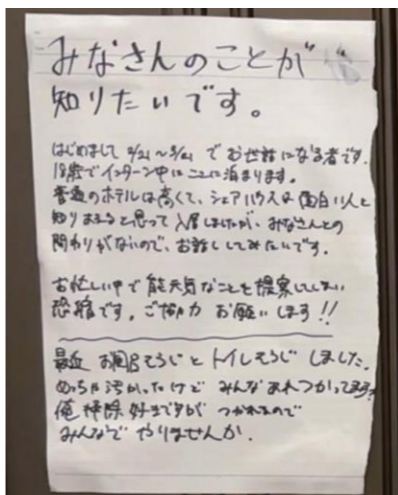 みなさんのことが
知りたいです。
はじめまして 2/21〜3/21 でお世話になる者です。
18歳でインターン中にここに泊まります。
普通のホテルは高くて、シェアハウスは面白い人と
知りあえると思って入居しましたが、みなさんとの
関わりがないので、お話ししてみたいです。
お忙しい中で能天気なことを提案してしまい
恐縮です。ご協力 お願いします!!
最近 お風呂そうじとトイレそうじしました。
めっちゃ汚かったけど みんなあれつかってます?
俺掃除好きですが つかれるので
みんなで やりませんか。